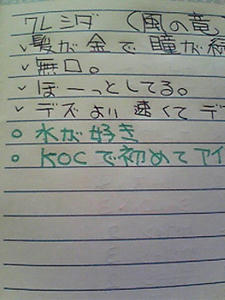 クレシダ （風の竜）
✓髪が金で 瞳が緑
✓無口。
✓ぼーっとしてる。
✓デズより速くてデ
○水が好き
○KOCで初めてアイ